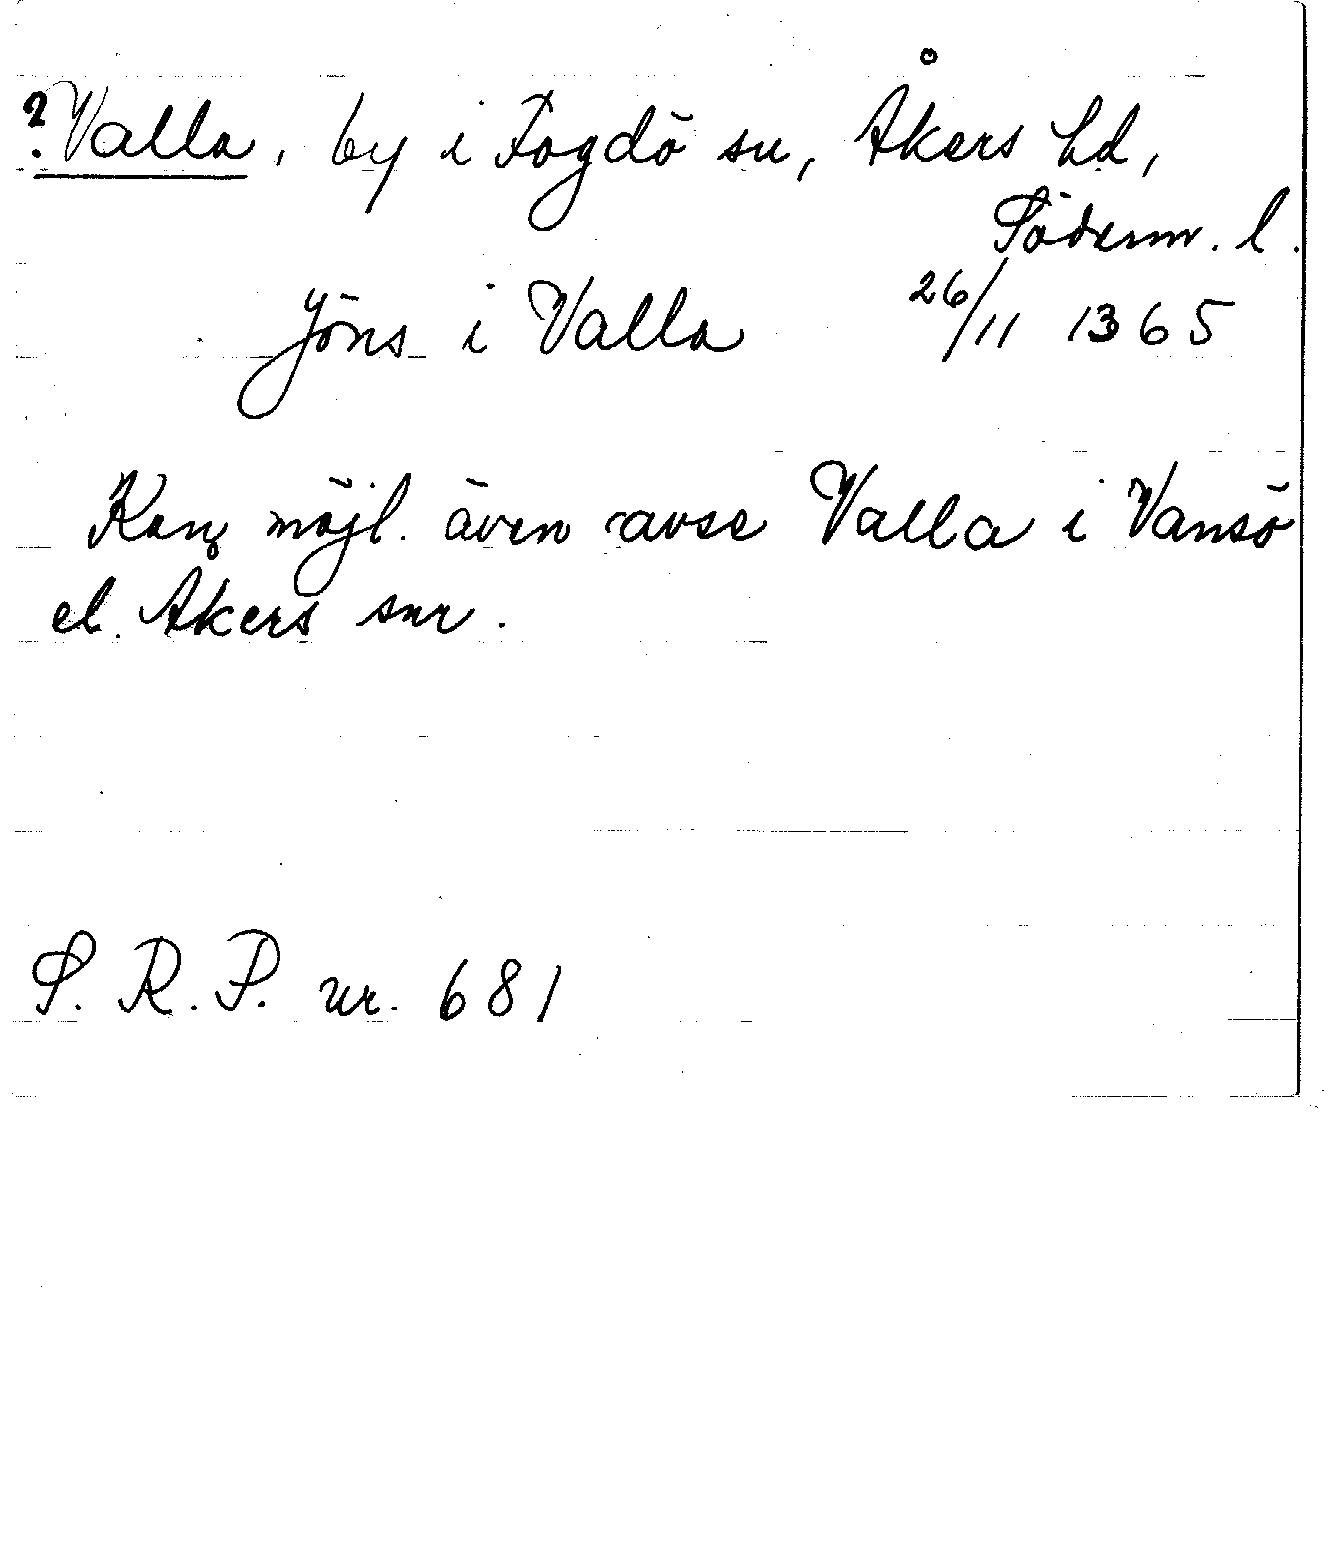 Å
?Valla, by i Fogdö sn, Åkers hd,
Söderm. l.
Jöns i Valla 26/11 1365
Kan möjl. även avse Valla i Vansö
el. Åkers snr.
S. R. P. nr. 681